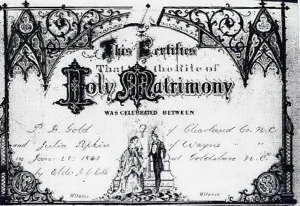 This Certifies
That the Rite of
Holy Matrimony
WAS CELEBRATED BETWEEN
P. D. Gold of Cleaveland Co. N.C.
and Julia Pipkin of Wayne " "
on Jan. 21 at Goldsboro N.C.
by Elder
Witness Witness